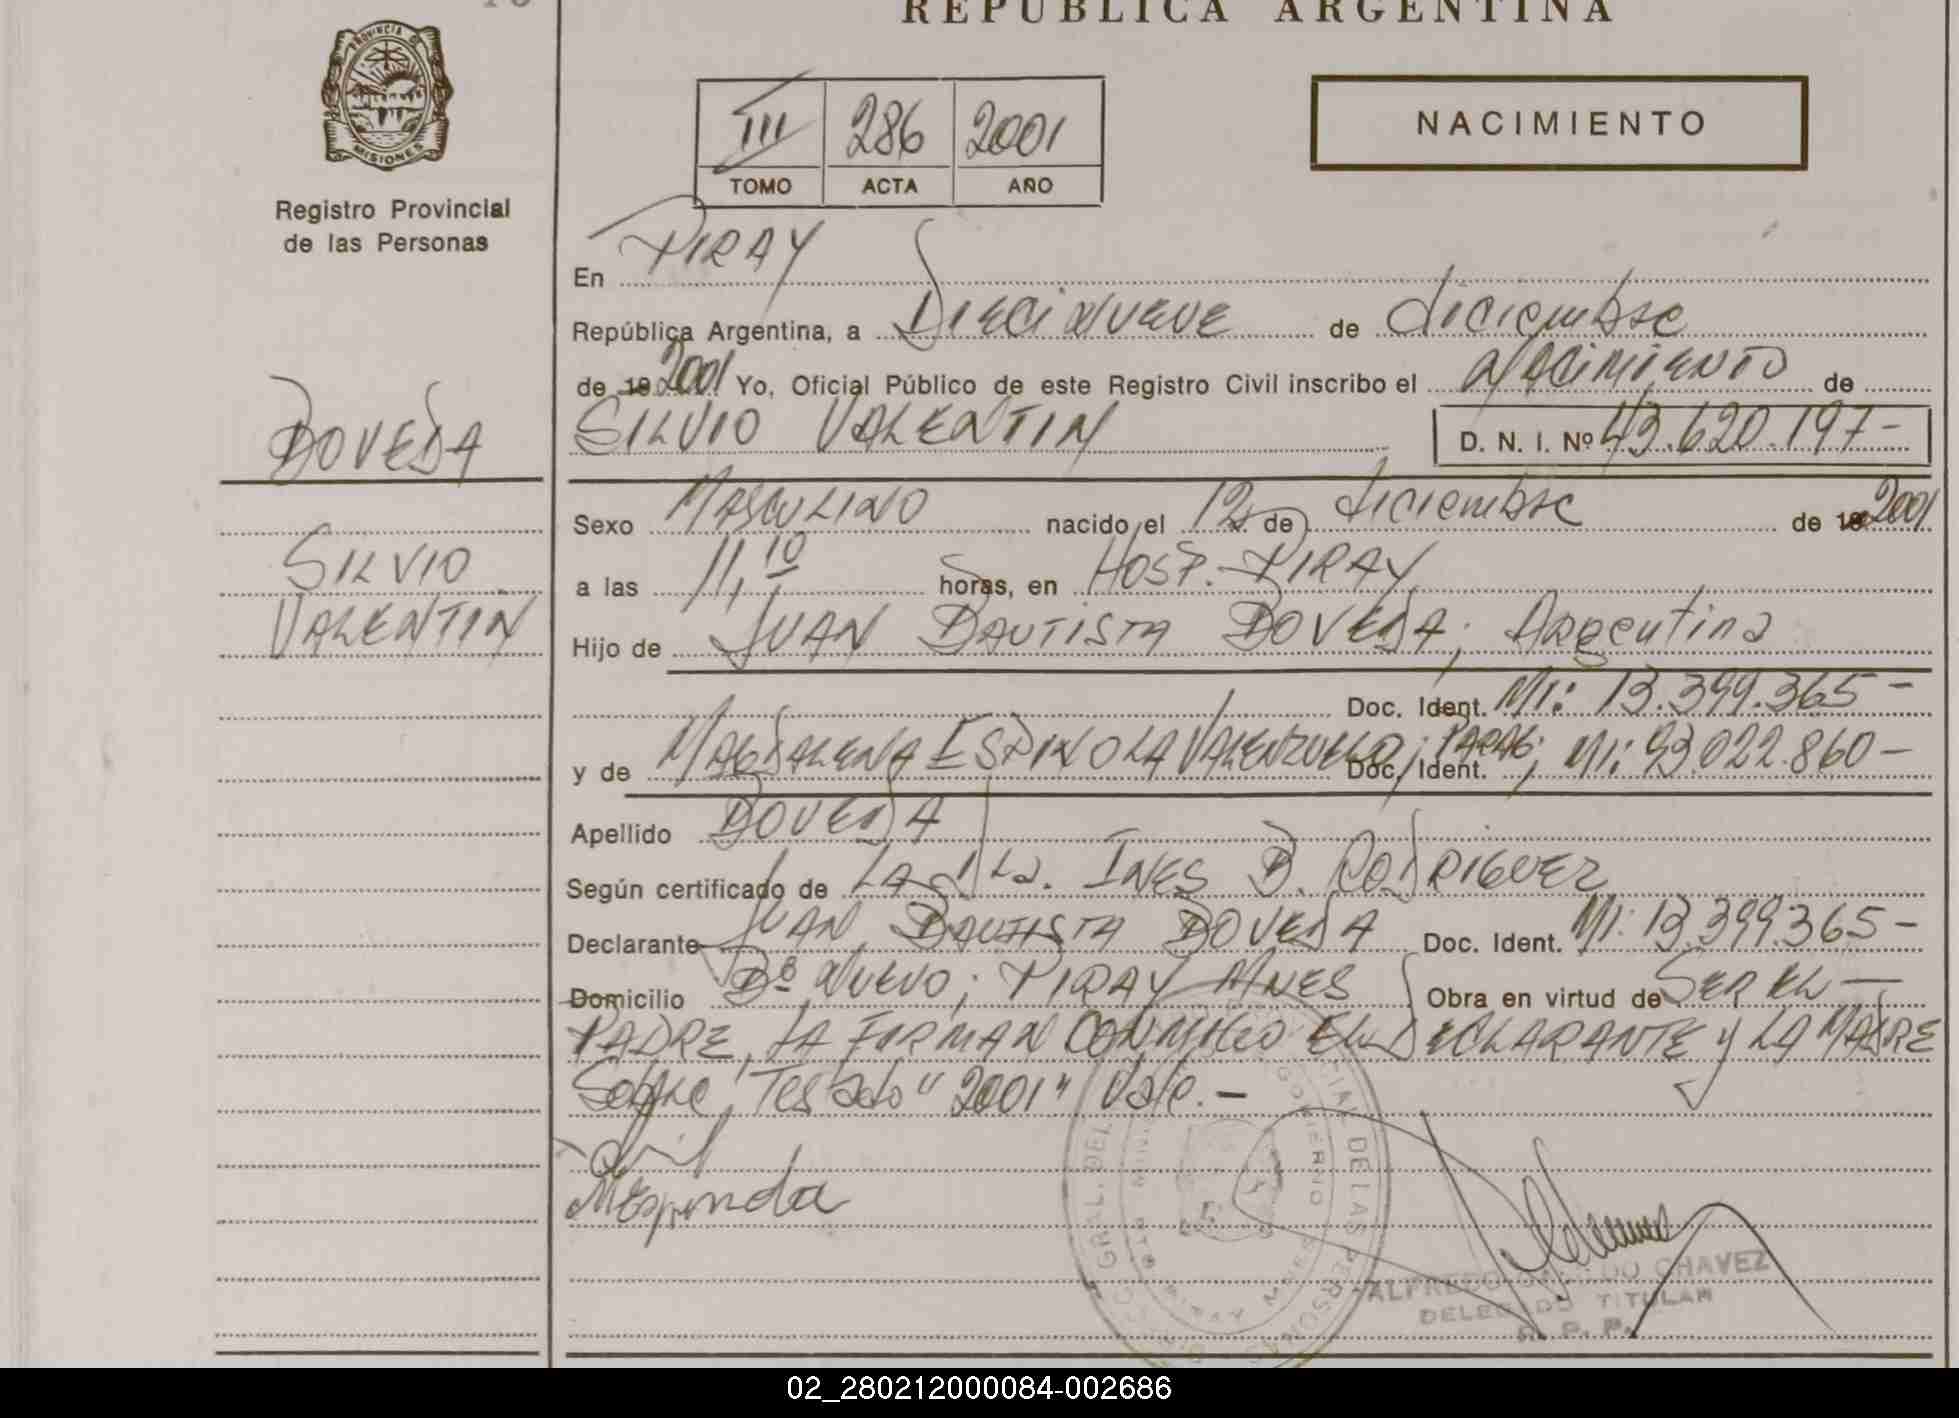 REPUBLICA ARGENTINA
PROVINCIA D
MISIONES
Registro Provincial
de las Personas
III 286 2001
TOMO ACTA AÑO
NACIMIENTO
En PIRAY
República Argentina, a DIECINUEVE de diciembre
de 19 2001 Yo, Oficial Público de este Registro Civil inscribo el NACIMIENTO de
SILVIO VALENTIN D. N. I. Nº 43.620.197-
BOVEDA
Sexo MASCULINO nacido el 12 de diciembre de 19 2001
SILVIO
a las 11,10 horas, en HOSP. PIRAY
VALENTIN
Hijo de JUAN BAUTISTA BOVEDA; Argentina
Doc. Ident. MI: 13.399.365-
y de MAGDALENA ESPINOLA VALENZUELA; PARAG; Doc. Ident. MI: 93.022.860-
Apellido BOVEDA
Según certificado de LA INES B. RODRIGUEZ
Declarante JUAN BAUTISTA BOVEDA Doc. Ident. MI: 13.399.365-
Domicilio Bº NUEVO; PIRAY MNES Obra en virtud de SER EL-
PADRE, LA FIRMAN CONMIGO EL DECLARANTE y LA MADRE
Sobre Testado "2001" Vale.-
MEspinola
GRAL. DEL DE LAS PERSONAS
GOBIERNO
PIRAY MNES
ALFREDO CHAVEZ
DELEGADO TITULAR
R. P. P.
02_280212000084-002686